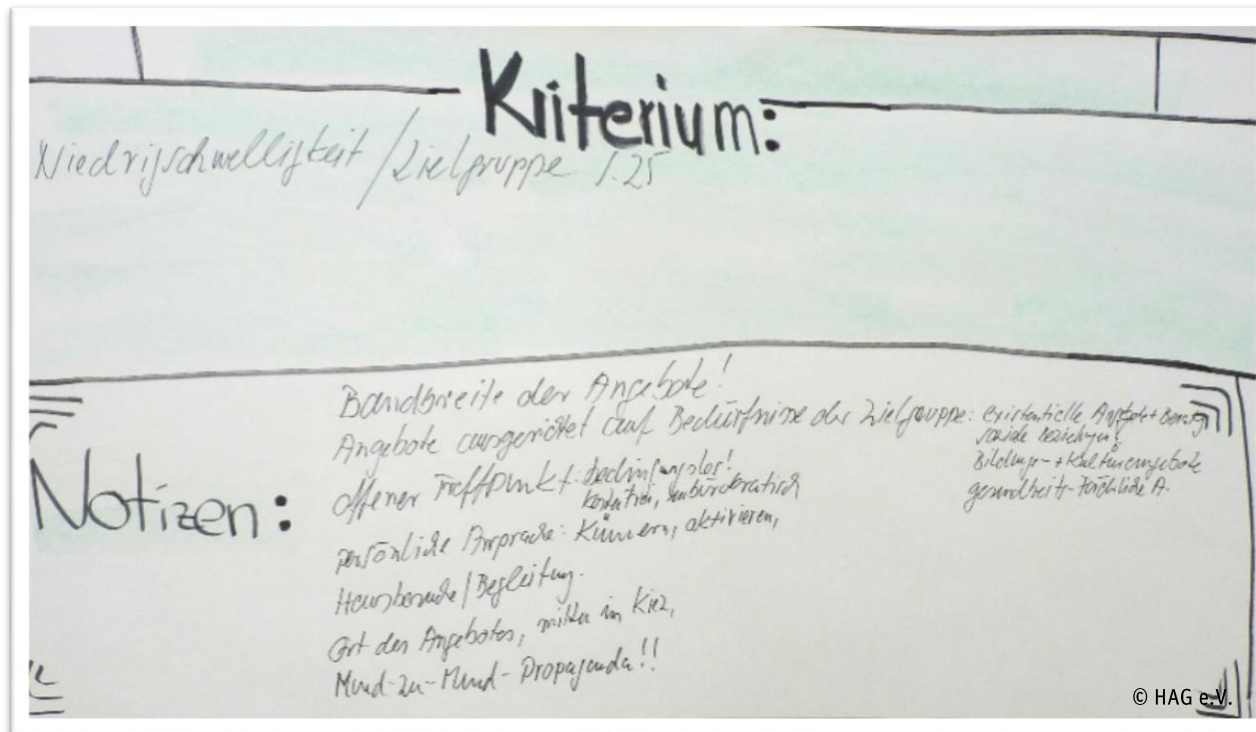 Kriterium:
Niedrigschwelligkeit / Zielgruppe 1.25
Notizen:
Bandbreite der Angebote!
Angebote ausgerichtet auf Bedürfnisse der Zielgruppe: existentielle Angebote + Beratung
soziale Beziehungen
Bildungs- + Kulturangebote
gesundheits-förderliche A.
offener Treffpunkt: bedingungslos!
kostenfrei, unbürokratisch
persönliche Ansprache: Kümmern, aktivieren,
Hausbesuche / Begleitung.
Ort des Angebotes, mitten im Kiez,
Mund-zu-Mund-Propaganda!!
© HAG e.V.